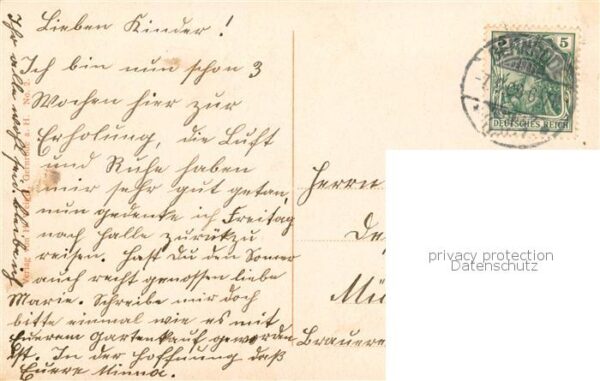 Lieben Kinder!
Ich bin nun schon 3
Wochen hier zur
Erholung, die Luft
und Ruhe haben
mir sehr gut getan,
nun gedenke ich Freitag
nach Halle zurükzu
reisen. Hast du den Somer
auch recht genossen liebe
Marie. Schreibe mir doch
bitte einmal wie es mit
Euerem Gartenkauf geworden
ist. In der Hoffnung daß
Ihr alle
Euere Minna.
5
DEUTSCHES REICH
Herrn
De
Mü
Brauere
privacy protection
Datenschutz